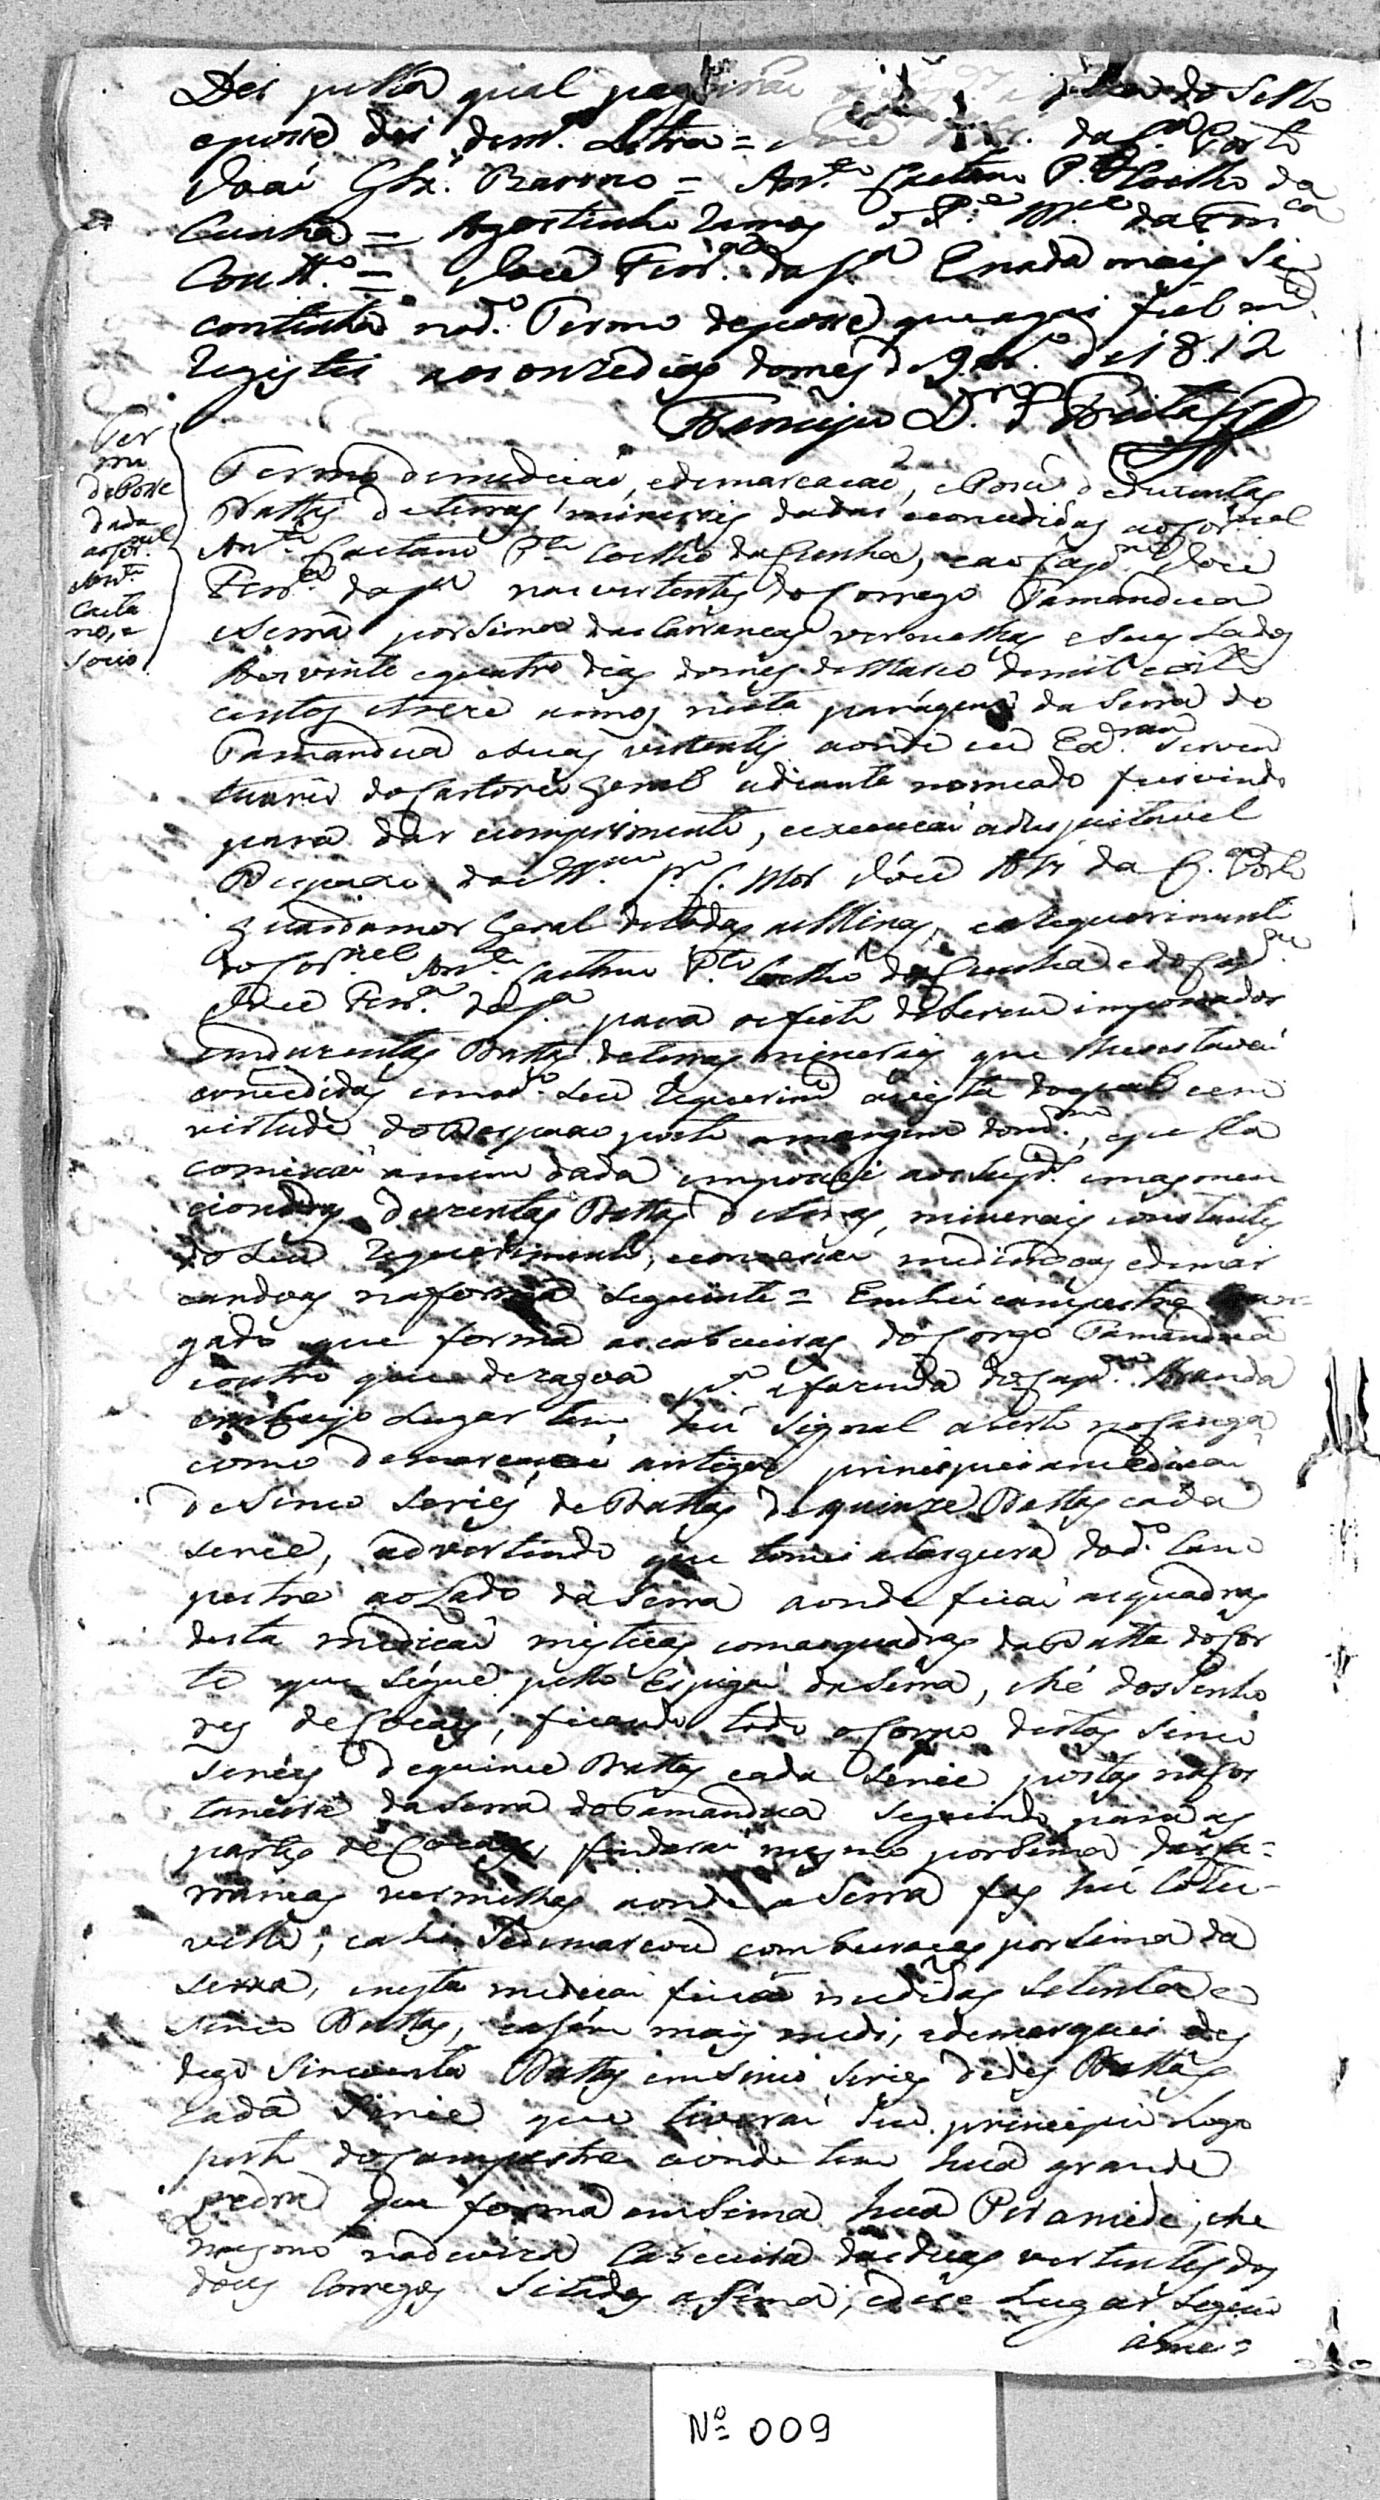 Dei pella qual pag do Sello
eposse dei dem.to Letra = da C.ta Porto
Joaõ Glz.' Barrozo = Ant.o Caetano P.to Coelho da
Cunha = Agostinho Lemos M.el da Fon.ca
Cout.o = Joze Ferr.a da S.a E nada mais se
continha nod.o Termo deposse que aqui fielm.te
Registei aos onze dias domes de 9br.o de 1812
Remigio D.es de Freitas
Ter
mo
de Posse
dada
aoCor.el
Ant.o
Caeta
no, e
Socio
Termo demediçaõ, edemarcacaõ, ePosse deduzentas
Dattas deterras mineraes dadas econcedidas aoCor.nel
Ant.o Caetano P.to Coelho daCunha, eao Cap.m Joze
Ferr.a daS.a nas vertentes doCorrego Tamandua
eSerra porsima das Carrancas vermelhas eSeus Lados
Aos vinte equatro dias domes de Marco demil eoito
centos etreze annos nesta parágem da Serra do
Tamandua eSuas vertentes aonde eu Escr.am Serven
tuario doCartorio Geral adiante nomeado fui vindo
para dár cumprimento, eexecucaõ aorespeitavel
Despacho do Ill.mo Sr. C. Mor Joze Alz da C. Porto
guardamor Geral detodas asMinas, eaRequerimento
doCor.nel Ant.o Caetano P.to Coelho daCunha e doCap.m
Joze Ferr.a daS.a para oefeito deSerem impossados
emduzentas Dattas deterras mineraes que lheestavaõ
concedidas emod.o Seu Requerim.to avista doqual eem
virtude doDespacho posto amargem dom.mo, epella
comicaõ amim dada impossei aosSup.es emasmen
cionadas duzentas Dattas deterras mineraes constantes
doSeu Requerimento, ecomecei medindoas edemar
candoas naforma Seguinte = Emhú campestre
gado que forma ascabeceiras doCorgo Tamandua
eoutro que dezagoa p.a afazenda doCap.m Miranda
emCujo Lugar tem hú Signal aberto noCanga
como demarcacaõ antiga principiei amediçaõ
deSinco Series deDattas dequinze Dattas cada
serie, advertindo que tomei alargura dod.o Cam
pestre aoLado daSerra aonde ficaõ asquadras
desta medicaõ misticas comasquadras daDatta doCor
te que Segue pello Espigaõ daSerra, ehé dosSenho
res deCocaes, ficando todo oCorpo destas Sinco
Series dequinze Dattas cada Serie postas nafor
taneira daSerra doTamandua Seguindo para as
partes deCocaes, findaraõ mesmo porSima dasCa-
rrancas vermelhas aonde aSerra fas hú Cotu-
vello, eahi Sedemarcou comburacos porSima da
Serra, enesta medicaõ ficaõ medidas Setenta e
Sinco Dattas, easim mais medi, edemarquei des
digo Sincoenta Dattas emSinco Series dedes Dattas
Cada Serie que tiveraõ Seu principio Logo
perto doCampestre aonde tem huã grande
pedra que forma emSima huã Piramide, ehe
mesmo nadeviza Cabeceira dasduas vertentes dos
dous Corregos Sitados aSima, edése Lugar Seguio
ame=
Nº 009